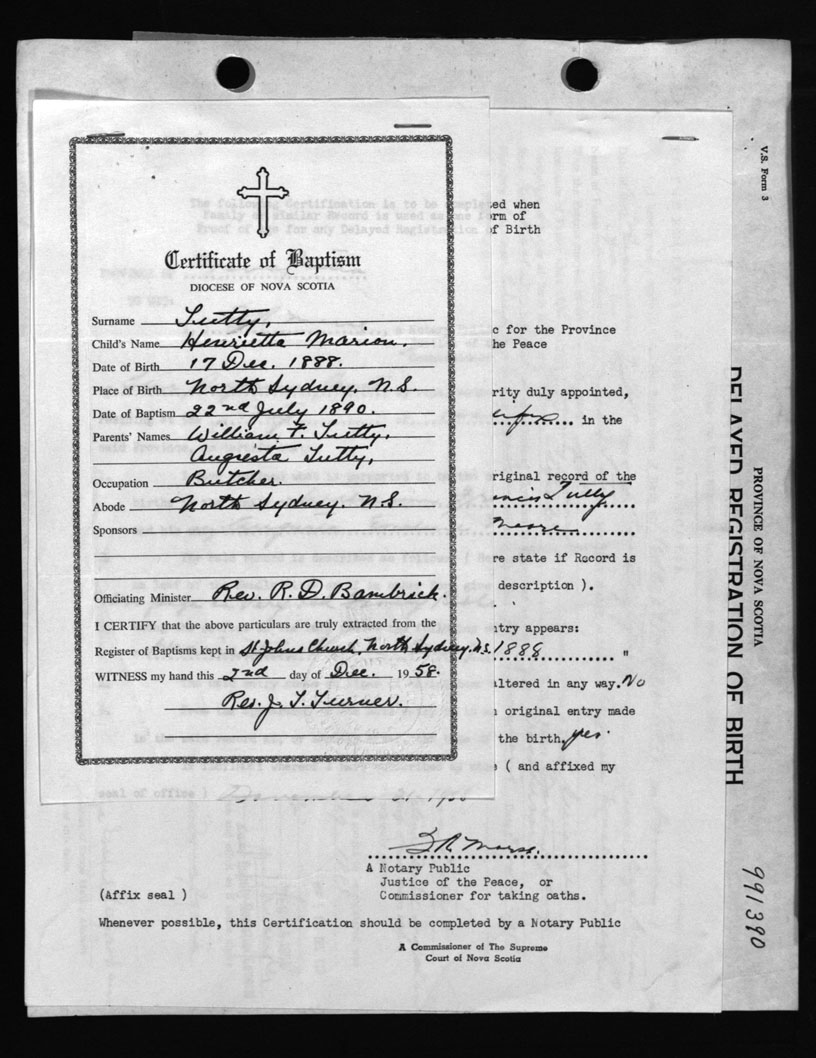 V.S. Form 3
PROVINCE OF NOVA SCOTIA
DELAYED REGISTRATION OF BIRTH
991390
Certificate of Baptism
DIOCESE OF NOVA SCOTIA
Surname Tutty,
Child's Name Henrietta Marion.
Date of Birth 17 Dec. 1888.
Place of Birth North Sydney, N.S.
Date of Baptism 22nd July 1890.
Parents' Names William F. Tutty,
Augusta Tutty,
Occupation Butcher.
Abode North Sydney. N.S.
Sponsors
Officiating Minister Rev. R. D. Bambrick.
I CERTIFY that the above particulars are truly extracted from the
Register of Baptisms kept in St. Johns Church, North Sydney. N.S.
WITNESS my hand this 2nd day of Dec. 1958.
Rev. J. T. Turner.
The following Certification is to be completed when
Family or similar Record is used as one form of
Proof of Age for any Delayed Registration of Birth
c for the Province
the Peace
rity duly appointed,
in the
riginal record of the
Tutty
Moore
re state if Record is
description ).
ntry appears:
1888 "
altered in any way. No
original entry made
the birth, yes.
( and affixed my
seal of office )
A Notary Public
Justice of the Peace, or
Commissioner for taking oaths.
(Affix seal )
Whenever possible, this Certification should be completed by a Notary Public
A Commissioner of The Supreme
Court of Nova Scotia